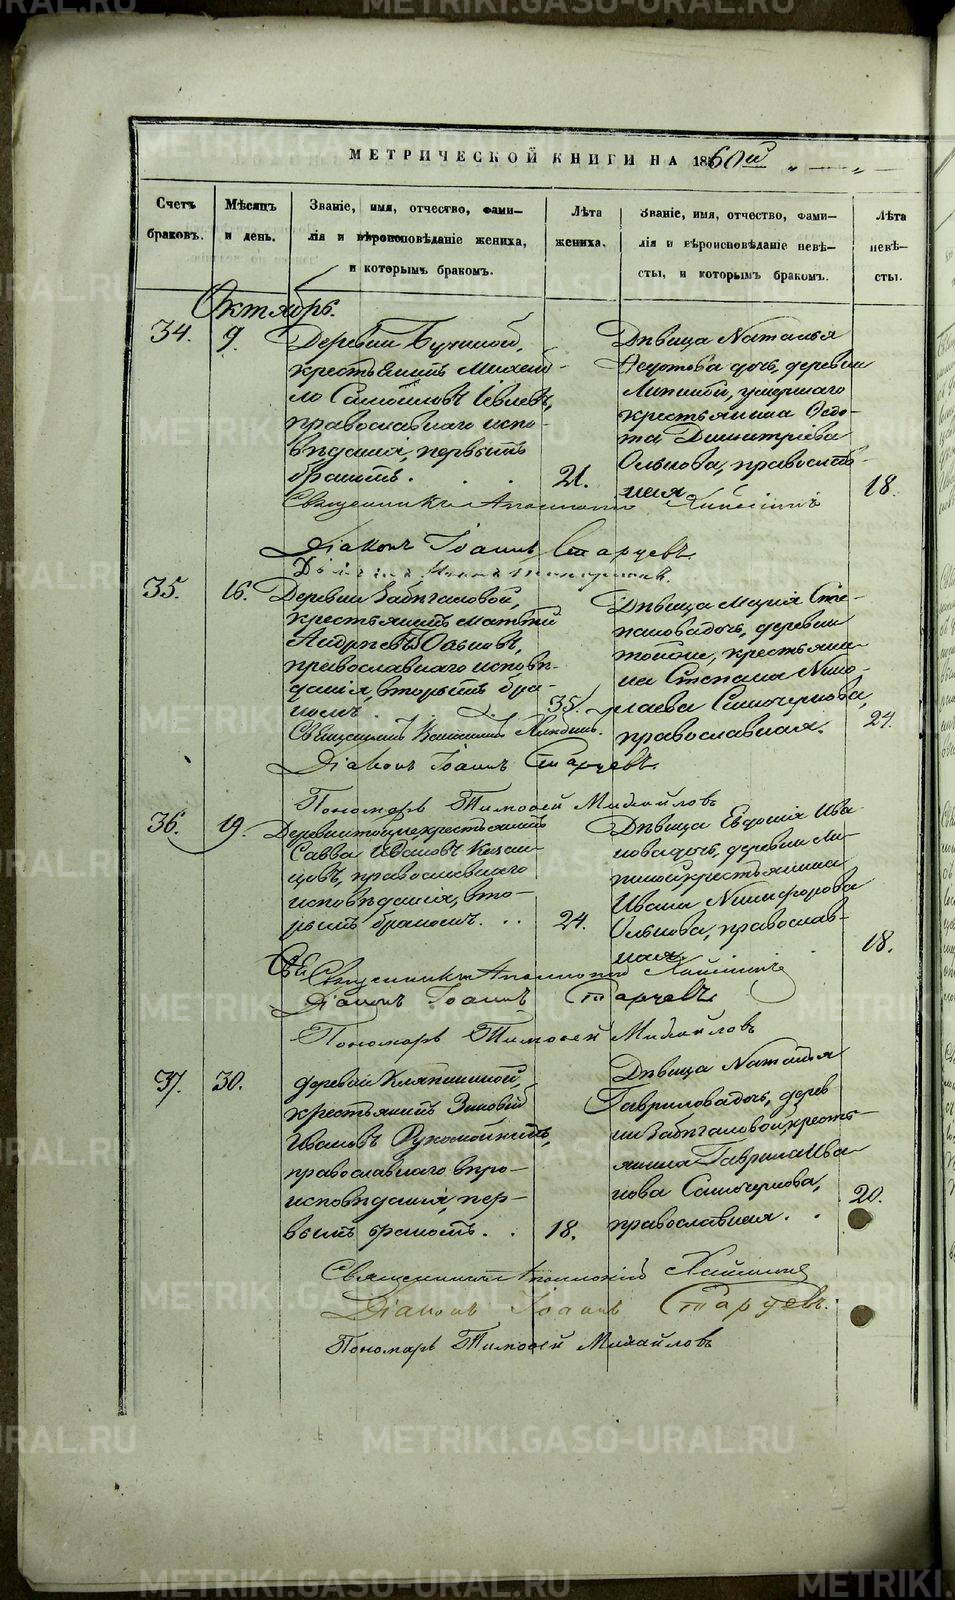 МЕТРИЧЕСКОЙ КНИГИ НА 1860й
Счетъ браковъ.
Мѣсяцъ и день.
Званіе, имя, отчество, фами-
лія и вѣроисповѣданіе жениха,
и которымъ бракомъ.
Лѣта жениха.
Званіе, имя, отчество, фами-
лія и вѣроисповѣданіе невѣ-
сты, и которымъ бракомъ.
Лѣта невѣ-
сты.
Октябрь.
34. 9.
Деревни
крестьянинъ Михаи-
ло Самойловъ Іевлевъ,
православнаго испо-
вѣданія, первымъ
бракомъ. 21.
Дѣвица Наталья
Ѳедотова дочь, деревни
Липиной, умершаго
крестьянина Ѳедо-
та Димитріева
Олькова, православ-
ная. 18.
Священникъ
Діаконъ Іоаннъ Старцевъ.
35. 16.
Деревни Забѣгаловой,
крестьянинъ Матѳій
Андреевъ
православнаго исповѣ-
данія, вторымъ бра-
комъ. 35.
Дѣвица Марія Сте-
панова дочь, деревни
тойже, крестьяни-
на Степана Нико-
лаева Синочернова,
православная. 24.
Священникъ
Діаконъ Іоаннъ Старцевъ.
Пономарь Тимоѳей Михайловъ
36. 19.
Деревни тойже крестьянинъ
Савва Ивановъ Казан-
цовъ, православнаго
исповѣданія, вто-
рымъ бракомъ. 24.
Дѣвица Евдокія Ива-
нова дочь, деревни Ли-
пиной крестьянина
Ивана Никифорова
Олькова, православ-
ная. 18.
Священникъ
Діаконъ Іоаннъ Старцевъ.
Пономарь Тимоѳей Михайловъ
37. 30.
деревни Кляпининой,
крестьянинъ Зиновій
Ивановъ Рукомойкинъ,
православнаго вѣро-
исповѣданія, пер-
вымъ бракомъ. 18.
Дѣвица Наталья
Гаврилова дочь, дерев
ни Забѣгаловой, кресть-
янина Гаврила Ива-
нова Синочернова,
православная. 20.
Священникъ
Діаконъ Іоаннъ Старцевъ.
Пономарь Тимоѳей Михайловъ
METRIKI.GASO-URAL.RU